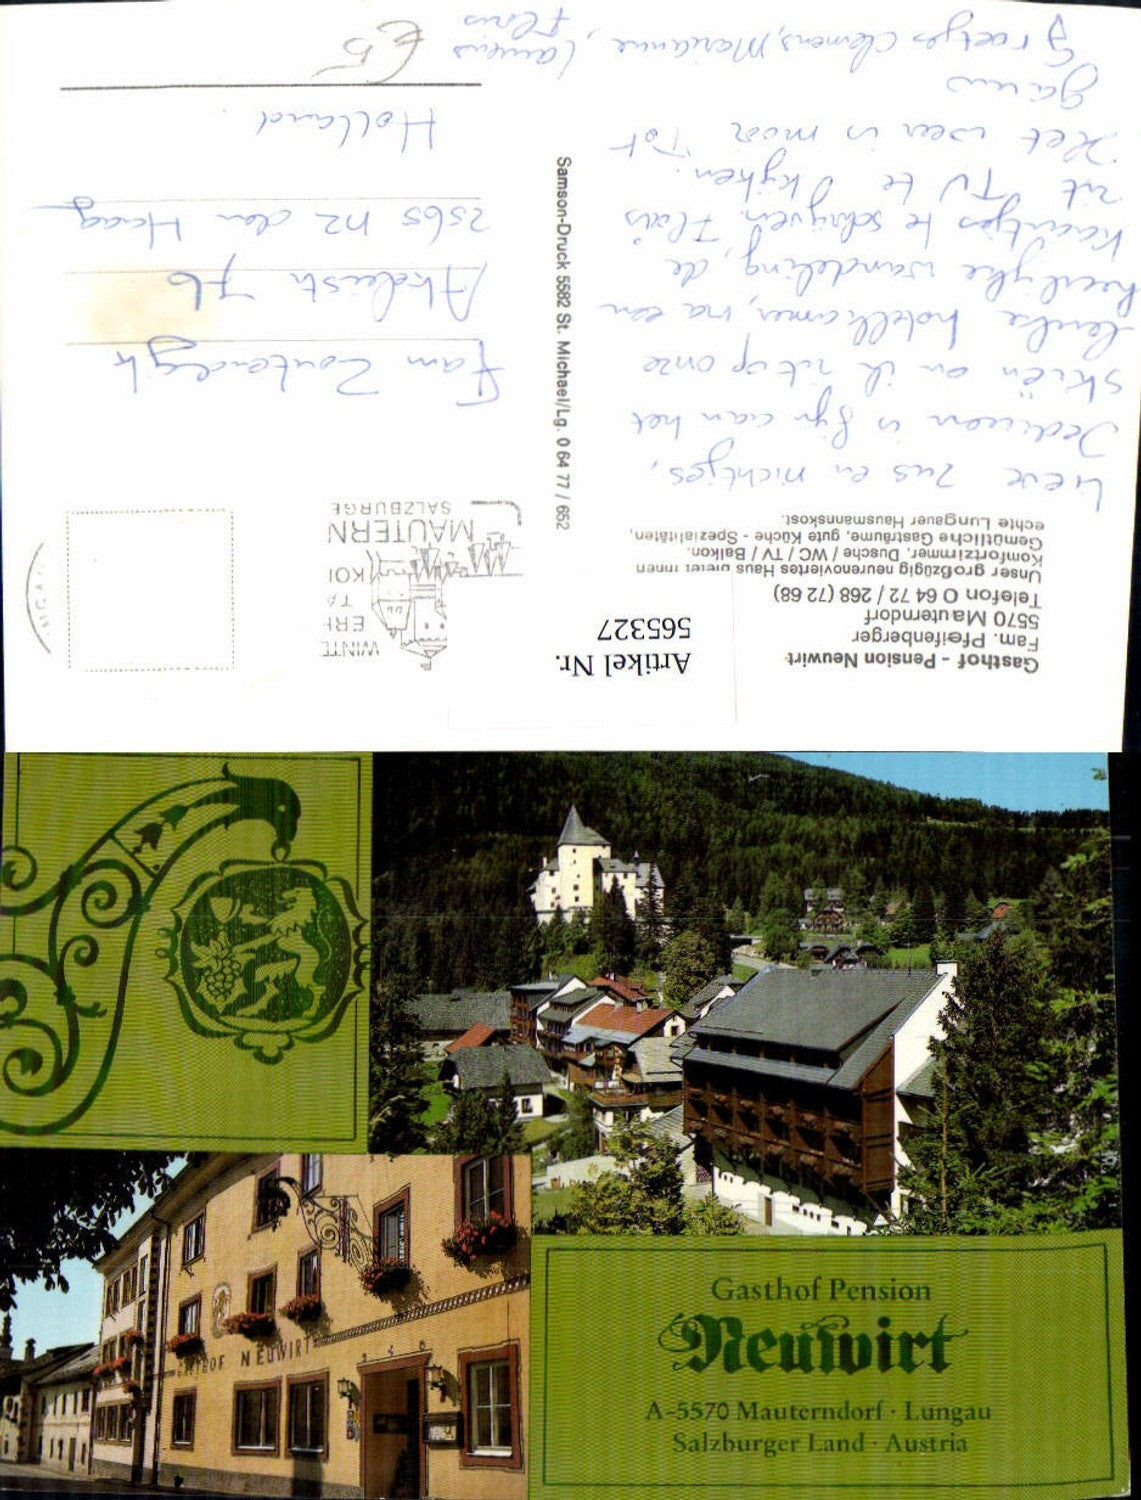 Gasthof - Pension Neuwirt
Fam. Pfeifenberger
5570 Mauterndorf
Telefon 0 64 72 / 268 (72 68)
Unser großzügig neurenoviertes Haus bietet Ihnen
Komfortzimmer, Dusche / WC / TV / Balkon.
Gemütliche Gasträume, gute Küche - Spezialitäten,
echte Lungauer Hausmannskost.
Artikel Nr.
565327
Lieve zus en nichtjes,
Iedereen is fijn aan het
skiën en ik zit op onze
hotelkamer, na een
heerlijke wandeling, de
kaartjes te schrijven. Floris
zit TV te kijken.
Het weer is mooi Tot
gauw
Groetjes Clemens, Marianne, Laurens
Floris
Samson-Druck 5582 St. Michael/Lg. 0 64 77 / 652
WINTE
ERH
TA
KOI
MAUTERN
SALZBURGE
UNGAU
Fam
Akeleistr 76
2565 den Haag
Holland.
€5
GASTHOF NEUWIRT
Gasthof Pension
Neuwirt
A-5570 Mauterndorf · Lungau
Salzburger Land · Austria